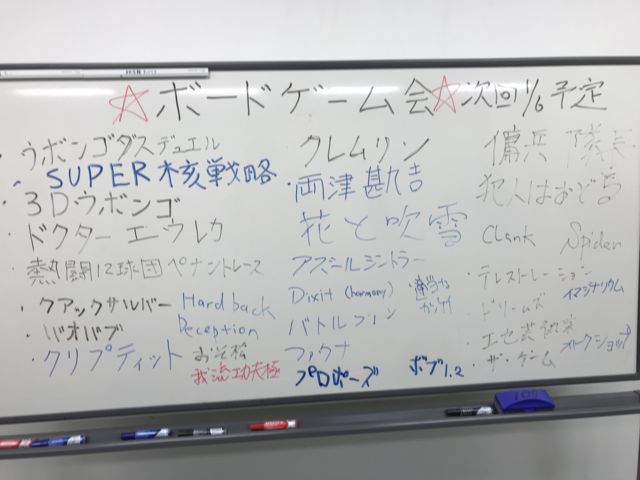 ☆ボードゲーム会☆次回1/6予定
・ウボンゴダスデュエル
SUPER核戦略
・3Dウボンゴ
・ドクターエウレカ
・熱闘12球団ペナントレース
・クアックサルバー Hardback
・バオバブ Deception
・クリプティット おそ松
我流功夫極
クレムリン
・両津勘吉
花と吹雪
アズールシントラー
Dixit (harmony) 適当な
カンケイ
バトルライン
ファウナ
プロポーズ ボブ1.2
傭兵隊長
犯人はおどる
Clank Spider
・テレストレーション
イマジナリウム
・ドリームズ
・エセ芸術家
・ザ・ゲーム ストクショップ